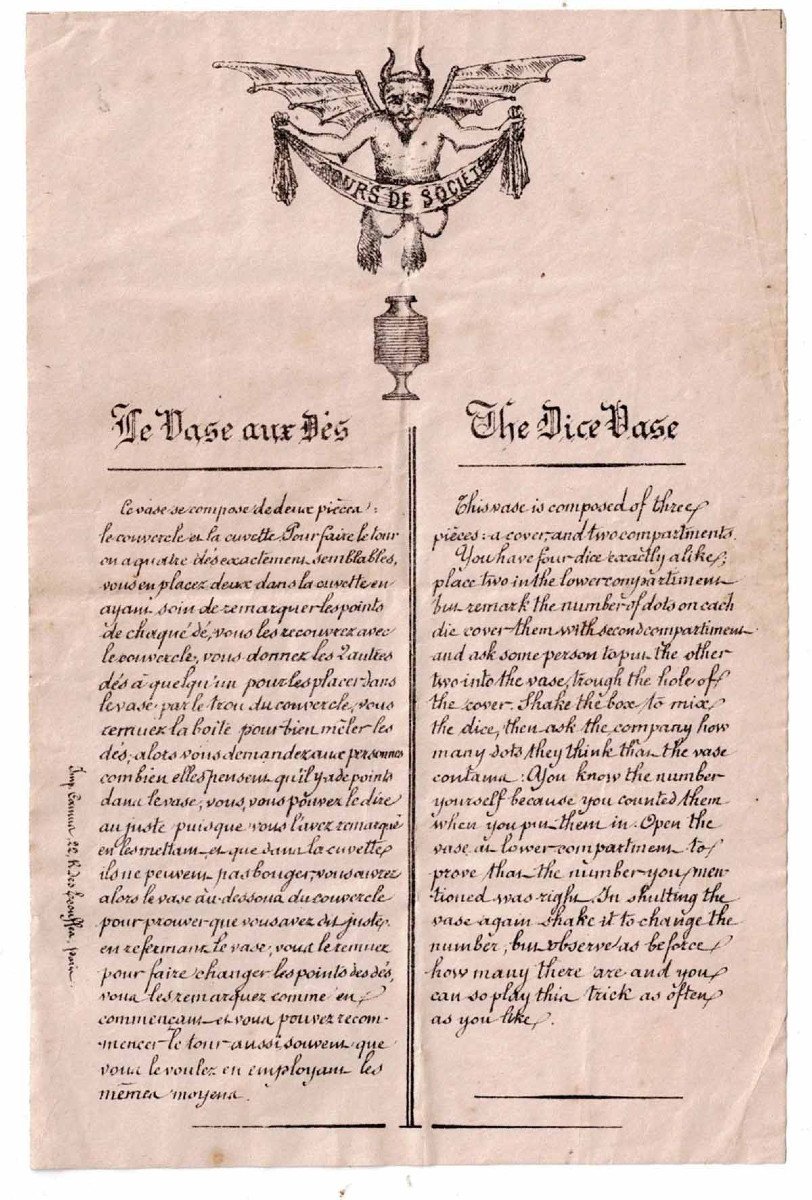 TOURS DE SOCIÉTÉ
Le Vase aux Dés
Ce vase se compose de deux pièces :
le couvercle et la cuvette Pour faire le tour
on a quatre dés exactement semblables,
vous en placez deux dans la cuvette en
ayant soin de remarquer les points
de chaque dé, vous les recouvrez avec
le couvercle, vous donnez les 2 autres
dés à quelqu'un pour les placer dans
le vase par le trou du couvercle, vous
remuez la boîte pour bien mêler les
dés, alors vous demandez aux personnes
combien elles pensent qu'il y a de points
dans le vase, vous, vous pouvez le dire
au juste puisque vous l'avez remarqué
en les mettant et que dans la cuvette
ils ne peuvent pas bouger, vous ouvrez
alors le vase au-dessous du couvercle
pour prouver que vous avez dit juste,
en refermant le vase, vous le remuez
pour faire changer les points des dés,
vous les remarquez comme en
commençant et vous pouvez recom-
mencer le tour aussi souvent que
vous le voulez en employant les
mêmes moyens.
The Dice Vase
This vase is composed of three
pièces : a cover, and two compartments.
You have four dice exactly alike;
place two in the lower compartiment
but remark the number of dots on each
die cover them with second compartiment
and ask some person to put the other
two into the vase, trough the hole of
the cover. Shake the box to mix
the dice, then ask the company how
many dots they think that the vase
contains : You know the number
yourself because you counted them
when you put them in. Open the
vase at lower compartment to
prove that the number you men-
tioned was right. In shutting the
vase again shake it to change the
number, but observe as beforce
how many there are and you
can so play this trick as often
as you like.
Imp. 22, R. des Paris.